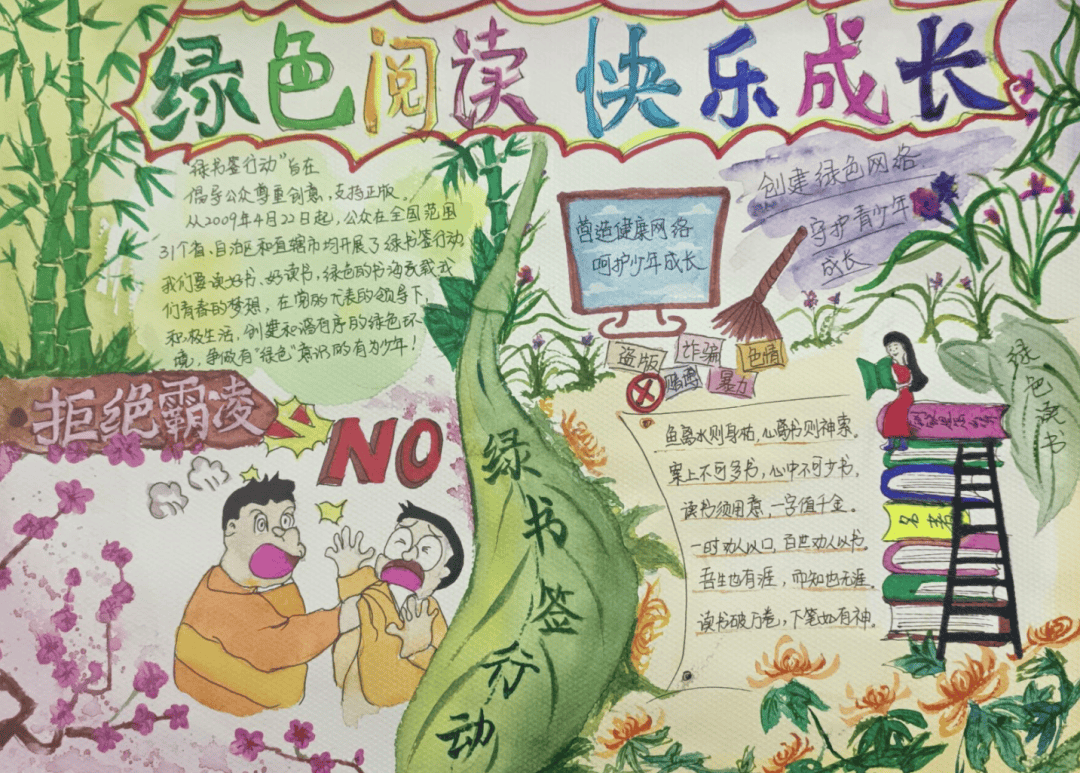 绿色阅读 快乐成长
"绿书签行动"旨在
倡导公众尊重创意,支持正版。
从2009年4月22日起,公众在全国范围
31个省、自治区和直辖市均开展了绿书签行动
我们要读好书、好读书,绿色的书海承载我
们青春的梦想,在党的代表的领导下,
积极生活,创建和谐有序的绿色环
境,争做有"绿色"意识的有为少年!
营造健康网络
呵护少年成长
创建绿色网络
守护青少年
成长
盗版
诈骗
色情
赌博
暴力
拒绝霸凌
NO
绿书签行动
鱼离水则身枯,心离书则神索。
案上不可多书,心中不可少书,
读书须用意,一字值千金。
一时劝人以口,百世劝人以书。
吾生也有涯,而知也无涯。
读书破万卷,下笔如有神。
名著
绿色读书